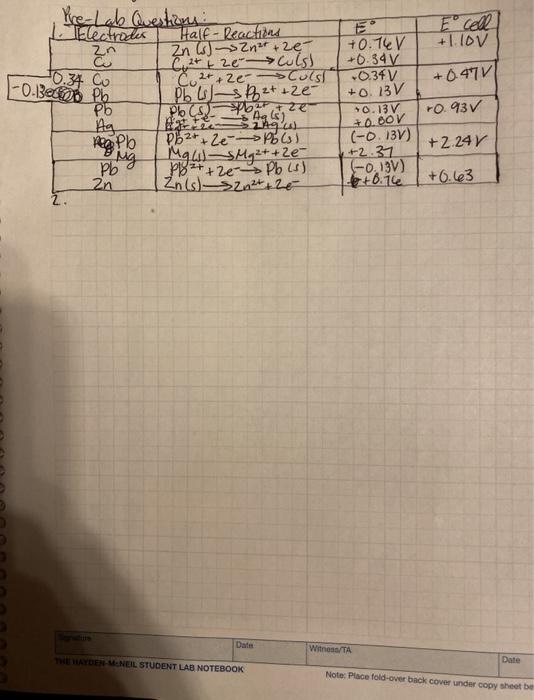 Pre-Lab Questions:
1. Electrodes Half-Reactions E° E° cell
Zn Zn(s)→Zn²⁺+2e⁻ +0.76V +1.10V
Cu Cu²⁺+2e⁻→Cu(s) +0.34V
0.34 Cu Cu²⁺+2e⁻→Cu(s) +0.34V +0.47V
-0.13 Pb Pb(s)→Pb²⁺+2e⁻ +0.13V
Pb Pb(s)→Pb²⁺+2e⁻ +0.13V +0.93V
Ag →Ag(s) +0.80V
Pb Pb²⁺+2e⁻→Pb(s) (-0.13V) +2.24V
Mg Mg(s)→Mg²⁺+2e⁻ +2.37
Pb Pb²⁺+2e⁻→Pb(s) (-0.13V) +0.63
Zn Zn(s)→Zn²⁺+2e⁻ +0.76
2.
Signature Date Witness/TA Date
THE HAYDEN-McNEIL STUDENT LAB NOTEBOOK
Note: Place fold-over back cover under copy sheet be